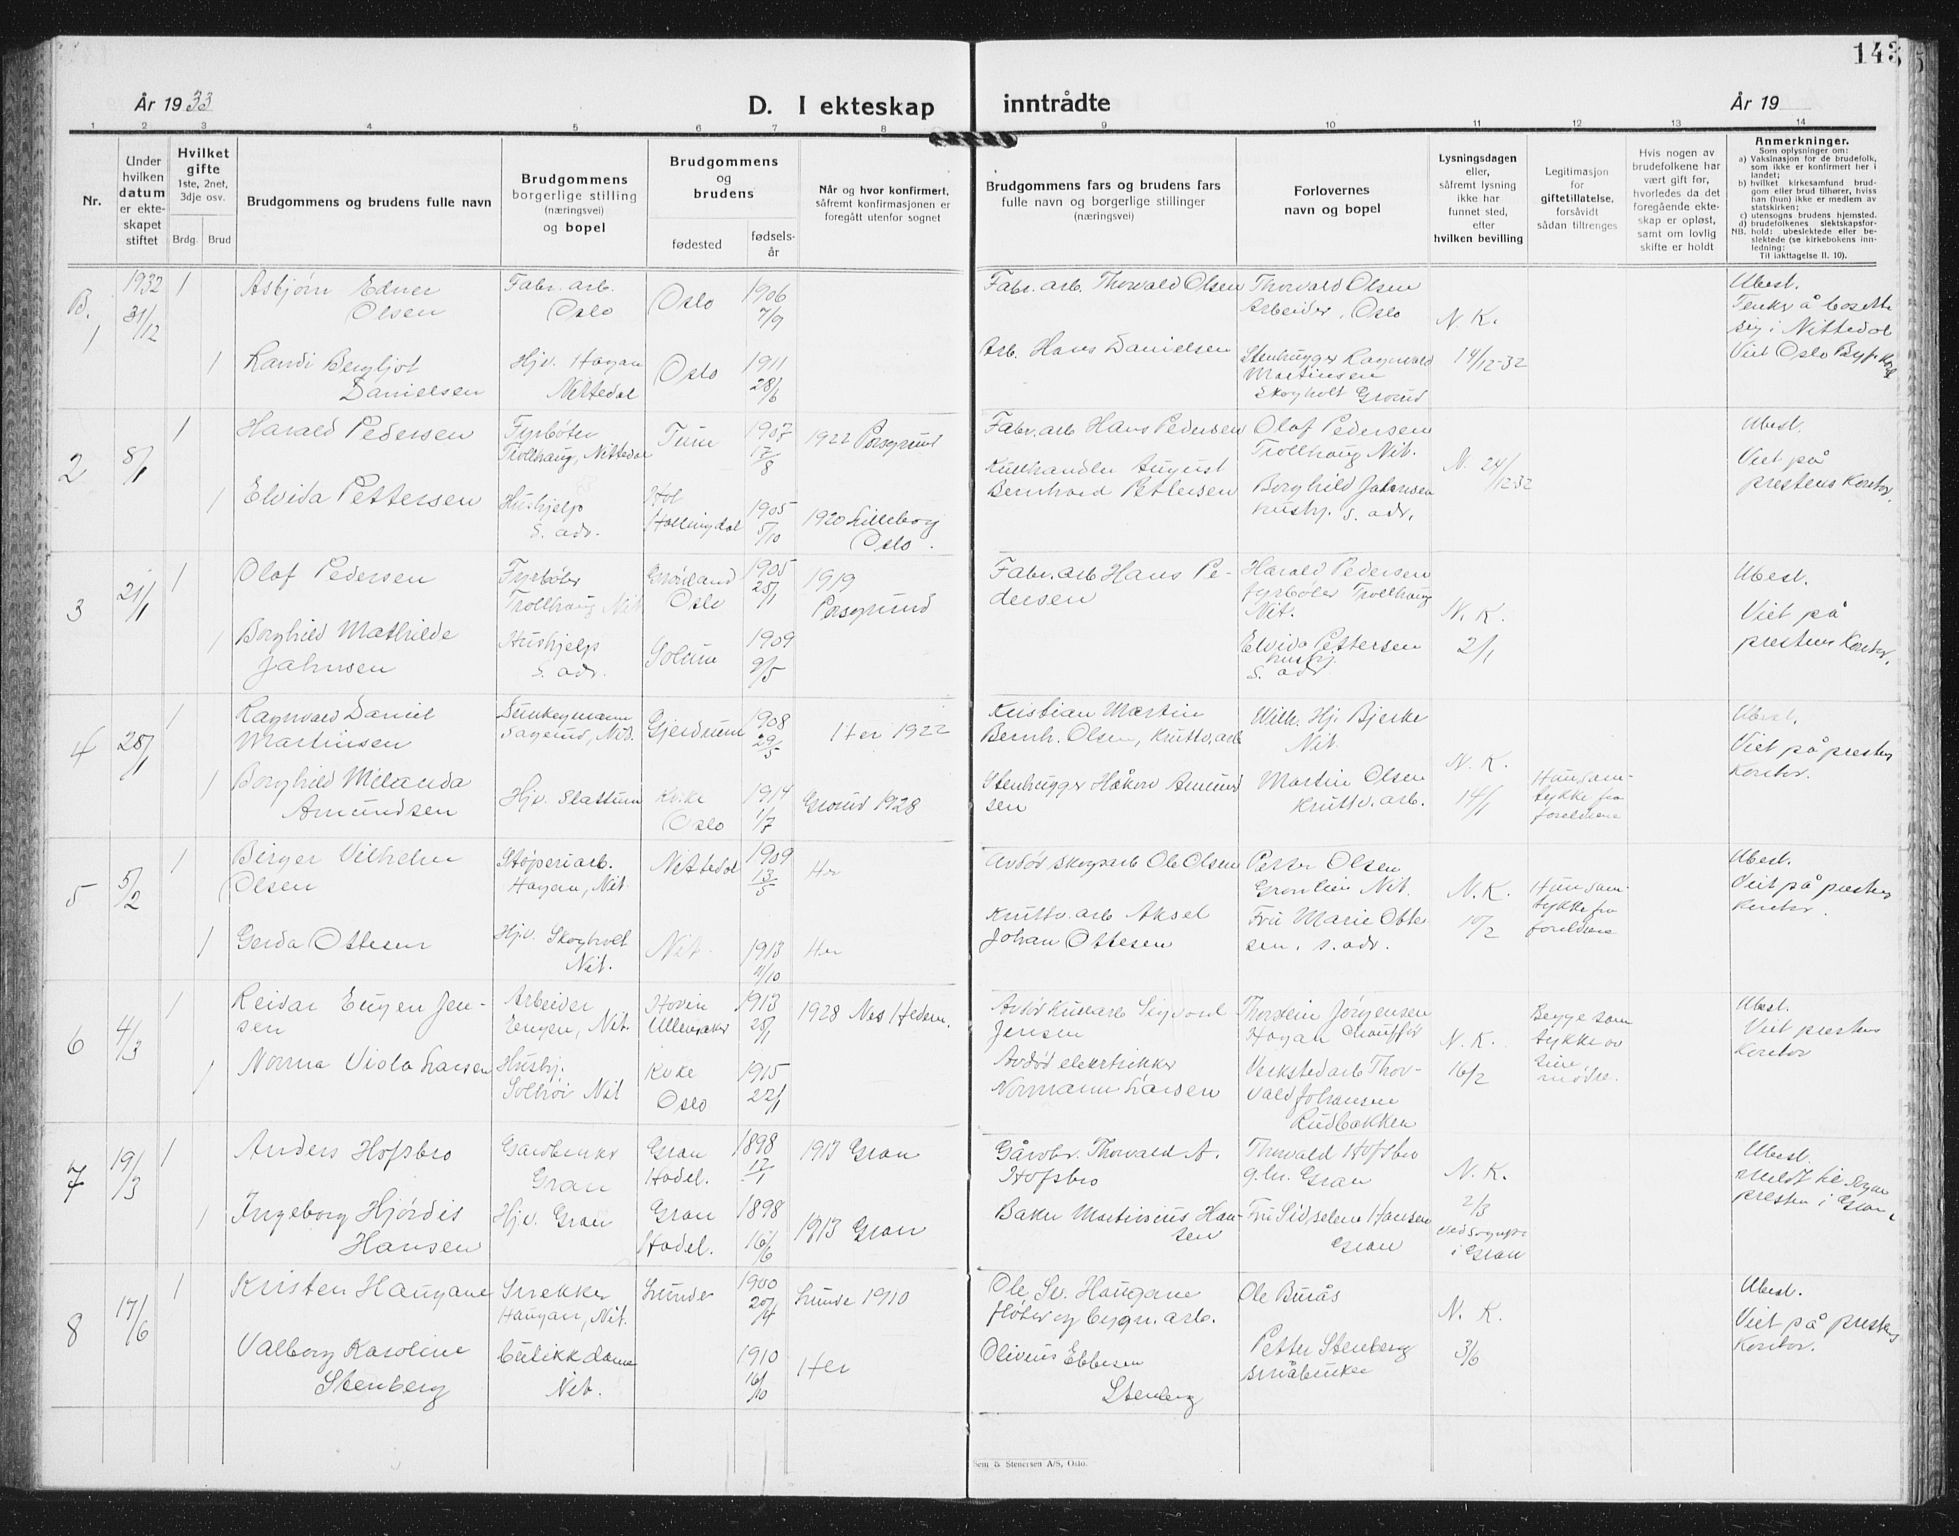 143
År 1933
D. I ekteskap inntrådte
År 19
1 2 3 4 5 6 7 8 9 10 11 12 13 14
Nr.
Under hvilken datum er ekteskapet stiftet
Hvilket gifte
1ste, 2net, 3dje osv.
Brdg. Brud
Brudgommens og brudens fulle navn
Brudgommens borgerlige stilling (næringsvei) og bopel
Brudgommens og brudens
fødested
fødselsår
Når og hvor konfirmert, såfremt konfirmasjonen er foregått utenfor sognet
Brudgommens fars og brudens fars fulle navn og borgerlige stillinger (næringsvei)
Forlovernes navn og bopel
Lysningsdagen eller, såfremt lysning ikke har funnet sted, efter hvilken bevilling
Legitimasjon for giftetillatelse, forsåvidt sådan tiltrenges
Hvis nogen av brudefolkene har vært gift før, hvorledes da det foregående ekteskap er opløst, samt om lovlig skifte er holdt
Anmerkninger.
Som oplysninger om:
a) Vaksinasjon for de brudefolk, som ikke er konfirmert her i landet;
b) hvilket kirkesamfund brudgom eller brud tilhører, hviss han (hun) ikke er medlem av statskirken;
c) utensogns brudens hjemsted.
d) brudefolkenes slektskapsforhold: ubeslektede eller beslektede (se kirkebokens innledning:
NB. Til iakttagelse II. 10).
B. 1
1932 31/12
1
Asbjørn Edner Olsen
Fabr. arb. Oslo
Oslo
1906 7/9
Fabr. arb. Thorvald Olsen
Thorvald Olsen Arbeider, Oslo
N. K. 14/12-32
Ubest.
Tenker å bosette seg i Nittedal
Viet Oslo Byf.
1
Randi Bergljot Danielsen
Hjv. Hagan Nittedal
Oslo
1911 28/6
Arb. Hans Danielsen
Stenhugger Ragnvald Martinsen Skogholt Grorud
2
8/1
1
Harald Pedersen
Fyrbøter Trollhaug, Nittedal
Tune
1907 17/8
1922 Porsgrund
Fabr. arb Hans Pedersen
Olaf Pedersen Trollhaug Nit.
N. 24/12-32
Ubest.
Viet på prestens kontor.
1
Elvida Pettersen
Hushjelp s. adr.
Hol Hallingdal
1905 5/10
1920 Lilleborg Oslo.
Kullhandler August Bernhard Pettersen
Borghild Jahnsen hushj. s. adr.
3
21/1
1
Olaf Pedersen
Fyrbøter Trollhaug Nit
Grønland Oslo
1905 25/1
1919 Porsgrund
Fabr. arb Hans Pedersen
Harald Pedersen fyrbøter Trollhaug Nit.
N. K. 2/1
Ubest.
Viet på prestens kontor.
1
Borghild Mathilde Jahnsen
Hushjelp s. adr.
Solum
1909 9/5
Elvida Pettersen hushj s. adr.
4
28/1
1
Ragnvald Daniel Martinsen
Sagerud, Nit.
Gjerdrum
1908 29/5
Her 1922
Kristian Martin Bernh. Olsen, kruttv. arb
Wilh. Hj. Bjerke Nit.
N. K. 14/1
Hun samtykke fra foreldrene
Ubest.
Viet på prestens kontor.
1
Borghild Milanda Amundsen
Hjv. Slattum
Kv.ke Oslo
1914 1/7
Grorud 1928
Stenhugger Håkon Amundsen
Martin Olsen Kruttv. arb.
5
5/2
1
Birger Vilhelm Olsen
Støperiarb. Hagan, Nit.
Nittedal
1909 13/5
Her
Avdød skogsarb Ole Olsen
Petter Olsen Grønlien Nit.
N. K. 10/2
Hun samtykke fra foreldrene
Ubest.
Viet på prestens kontor.
1
Gerda Ottesen
Hjv. Skoghvet Nit.
Nit.
1913 4/10
Her
Kruttv. arb Aksel Johan Ottesen
Fru Marie Ottesen, s. adr.
6
4/3
1
Reidar Eugen Jensen
Arbeider Engen, Nit.
Hovin Ullensaker
1913 25/1
1928 Nes Hedm.
Sigvard Jensen
Thorstein Jørgensen Hagan Chauffør
N. K. 16/2
Begge samtykke av sine mødre.
Ubest.
Viet prestens kontor
1
Norma Viola Larsen
Hushj. Solhøi Nit
Kv.ke Oslo
1915 22/1
Avdød elektrikker Normann Larsen
Verkstedarb Thorvald Johansen Rudbakken
7
19/3
1
Anders Hofsbro
Gårdbruker Gran
Gran Hadel.
1898 17/1
1913 Gran
Gårdbr. Thorvald A. Hofsbro
Thorvald Hofsbro g.br. Gran
N. K. 2/3 i Gran
Ubest.
Meldt til sognepresten i Gran.
1
Ingeborg Hjørdis Hansen
Hjv. Gran
Gran Hadel.
1898 16/6
1913 Gran
Baker Martinius Hansen
Fru Sidselene Hansen Gran
8
17/6
1
Kristen Haugane
Snekker Haugan, Nit.
Lunde
1900 20/4
Lunde 1910
Ole Sv. Haugane fløter og bygn. arb.
Ole Burås
N. K. 3/6
Ubest.
Viet på prestens kontor.
Valborg Karoline Stenberg
Butikkdame Nit.
1910 16/10
Her
Olivius Ebbesen Stenberg
Petter Stenberg småbruker
Sem & Stenersen A/S, Oslo.